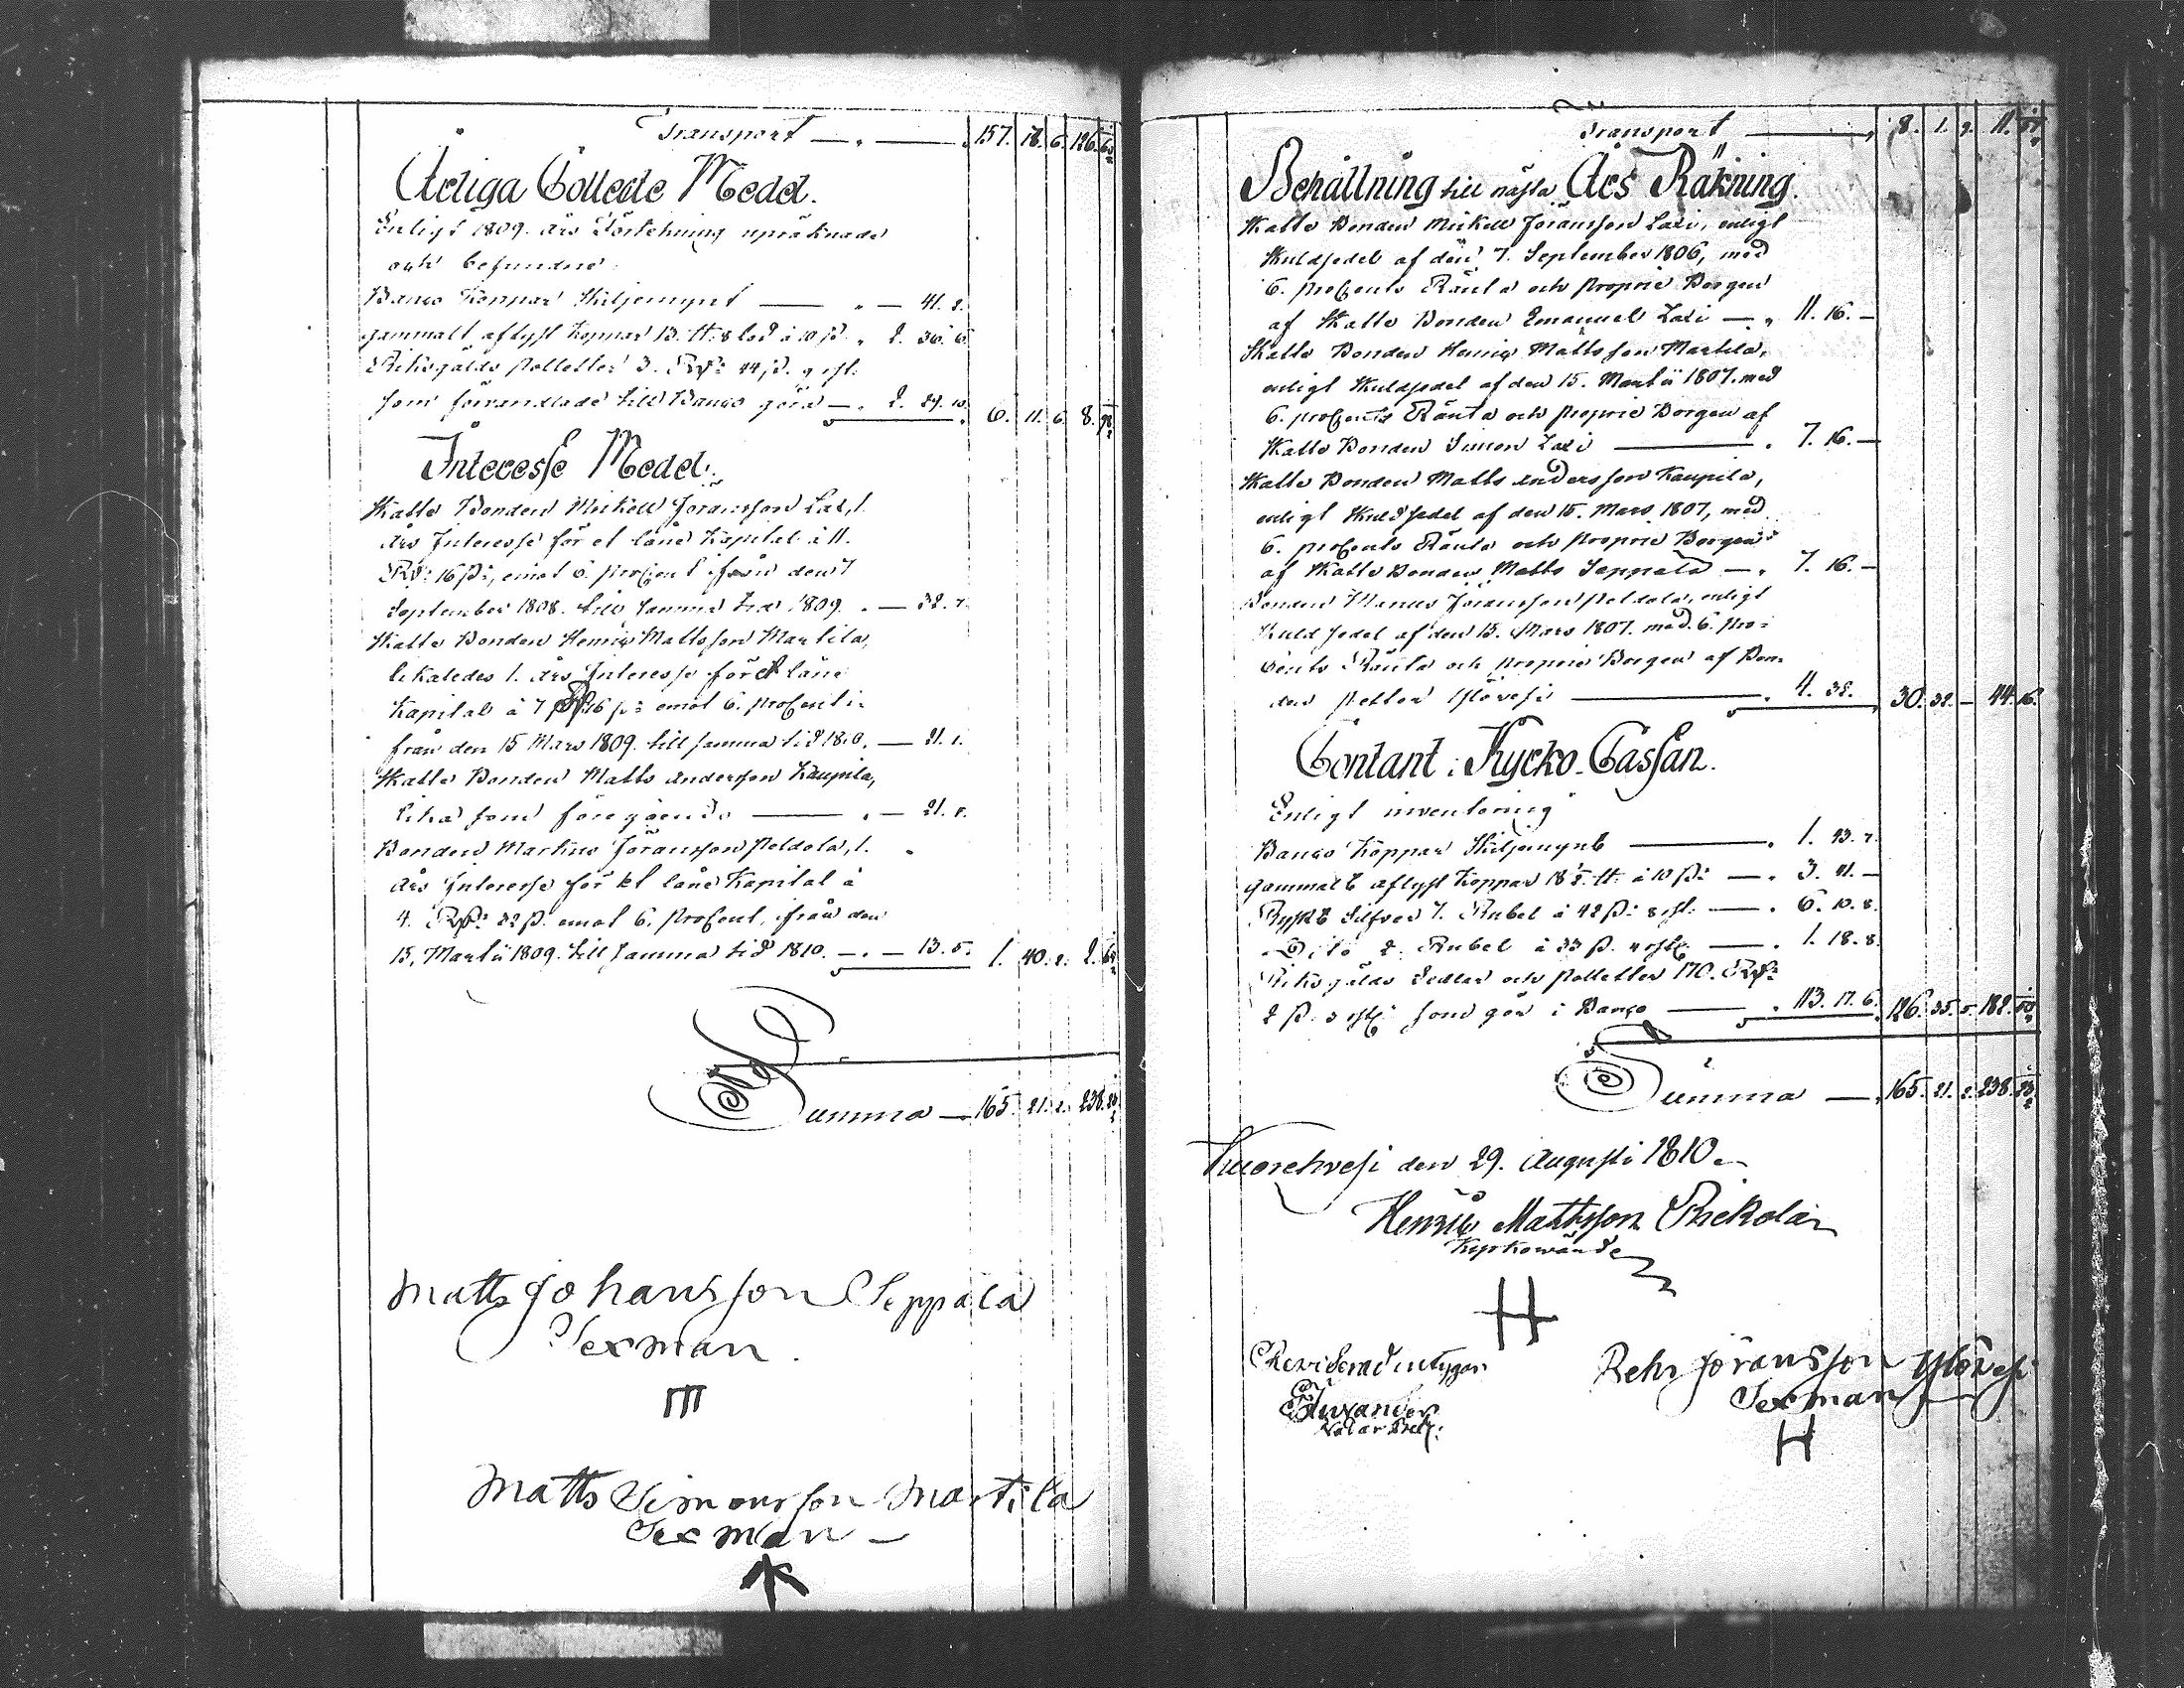 Transport — „ — 157. 18. 6. 126. 62
Årliga Collecte Medel.
Enligt 1809. års Förtekning upräknade
och befundne:
Banco Koppar Skiljemynt — „ — 41. 2.
gammalt aflyst Koppar 13. ℔ 8 lod à 10 ß. „ 2. 36. 6.
Riksgälds Polletter 3. Rd: 44 ß. 9 rst:
som förvandlade till Banco göra — „ 2. 29. 10. 6. 11. 6. 8. 98
Interesse Medel.
Skatte Bonden Mickell Jöransson Lari, 1.
års Interesse för et låne Kapital à 11.
Rd: 16 ß:, emot 6. proCent ifrån den 7
September 1808. till samma tid 1809. „ — 32. 7.
Skatte Bonden Henric Mattsson Martila,
likaledes 1. års Interesse för et låne
Kapital à 7 Rd 16 ß: emot 6. proCent i:
från den 15 Mars 1809. till samma tid 1810. — 21. 1.
Skatte Bonden Matts Andersson Kaupila,
lika som föregående — „ — 21. 1.
Bonden Markus Jöransson Peldola, 1.
års Interesse för et låne Kapital à
4. Rd: 32 ß. emot 6. proCent, ifrån den
15. Martii 1809. till samma tid 1810. — „ — 13. 5. 1. 40. 2. 2. 62
Summa — 165. 21. 2. 238. 23
Matts Johansson Seppälä
Sexman.
Matts Simonsson Martila
Sexman —
Transport — 8. 1. 9. 11. 57
Behållning till nästa Års Räkning.
Skatte Bonden Mickell Jöransson Lari, enligt
Skuldsedel af den 7. September 1806, med
6. proCents Ränta och proprie Borgen
af Skatte Bonden Emanuel Lari — „ 11. 16. —
Skatte Bonden Henric Mattsson Martila,
enligt Skuldsedel af den 15. Martii 1807. med
6. proCents Ränta och proprie Borgen af
Skatte Bonden Simon Lari — „ 7. 16. —
Skatte Bonden Matts Andersson Kaupila,
enligt Skuldsedel af den 15. Mars 1807, med
6. proCents Ränta och proprie Borgen
af Skatte Bonden Matts Seppälä — „ 7. 16. —
Bonden Marcus Jöransson Peldola, enligt
Skuldsedel af den 15. Mars 1807. med 6. pro:
Cents Ränta och proprie Borgen af Bon:
den Petter Ylövesi — „ 4. 32. 30. 32. — 44. 16.
Contant i Kyrko-Cassan.
Enligt inventering
Banco Koppar Skiljemynt — „ 1. 43. 7.
gammalt aflyst Koppar 18 ½ ℔ à 10 ß: — „ 3. 41. —
Ryskt Silfver 7. Rubel à 42 ß: 8 rst: — „ 6. 10. 8.
Dito 2. Rubel à 33 ß. 4 rst: — „ 1. 18. 8.
Riksgälds Sedlar och Polletter 170. Rd:
2 ß. 3 rst: som gör i Banco — „ 113. 17. 6. 126. 35. 5. 182. 50
Summa — 165. 21. 2. 238. 23
Kuorehvesi den 29. Augusti 1810.
Henric Mattsson Riekola
Kyrkowärde
H
Reviderad intygar
Pehr Jöransson Ylövesi
Sexman
H